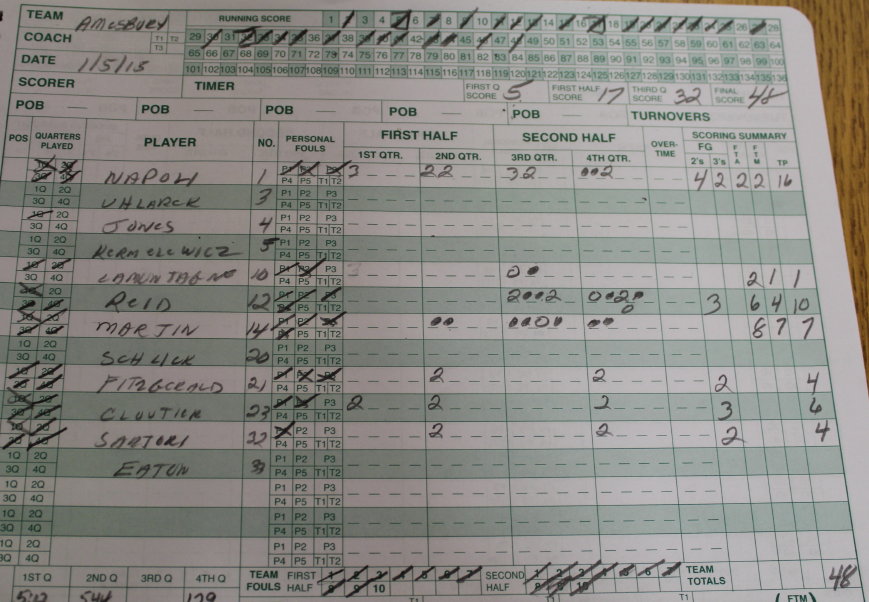 TEAM AMESBURY RUNNING SCORE 1 2 3 4 5 6 7 8 9 10 11 12 13 14 15 16 17 18 19 20 21 22 23 24 25 26 27 28
COACH T1 T2 T3 29 30 31 32 33 34 35 36 37 38 39 40 41 42 43 44 45 46 47 48 49 50 51 52 53 54 55 56 57 58 59 60 61 62 63 64
DATE 1/5/15 65 66 67 68 69 70 71 72 73 74 75 76 77 78 79 80 81 82 83 84 85 86 87 88 89 90 91 92 93 94 95 96 97 98 99 100
101 102 103 104 105 106 107 108 109 110 111 112 113 114 115 116 117 118 119 120 121 122 123 124 125 126 127 128 129 130 131 132 133 134 135 136
SCORER TIMER FIRST Q SCORE 5 FIRST HALF SCORE 17 THIRD Q SCORE 32 FINAL SCORE 48
POB POB POB POB POB TURNOVERS
POS QUARTERS PLAYED PLAYER NO. PERSONAL FOULS FIRST HALF SECOND HALF OVER-TIME SCORING SUMMARY
1ST QTR. 2ND QTR. 3RD QTR. 4TH QTR. FG 2's 3's FTA FTM TP
1Q 2Q 3Q 4Q NAPOLI 1 P1 P2 P3 P4 P5 T1 T2 3 22 32 2 4 2 2 2 16
1Q 2Q 3Q 4Q UHLARCK 3 P1 P2 P3 P4 P5 T1 T2
1Q 2Q 3Q 4Q JONES 4 P1 P2 P3 P4 P5 T1 T2
1Q 2Q 3Q 4Q 5 P1 P2 P3 P4 P5 T1 T2
1Q 2Q 3Q 4Q 10 P1 P2 P3 P4 P5 T1 T2 2 1 1
1Q 2Q 3Q 4Q REID 12 P1 P2 P3 P4 P5 T1 T2 3 6 4 10
1Q 2Q 3Q 4Q MARTIN 14 P1 P2 P3 P4 P5 T1 T2 8 7 7
1Q 2Q 3Q 4Q SCHLICK 20 P1 P2 P3 P4 P5 T1 T2
1Q 2Q 3Q 4Q FITZGERALD 21 P1 P2 P3 P4 P5 T1 T2 2 2 2 4
1Q 2Q 3Q 4Q CLOUTIER 23 P1 P2 P3 P4 P5 T1 T2 2 2 2 3 6
1Q 2Q 3Q 4Q SARTORI 22 P1 P2 P3 P4 P5 T1 T2 2 2 2 4
1Q 2Q 3Q 4Q EATON P1 P2 P3 P4 P5 T1 T2
1Q 2Q 3Q 4Q P1 P2 P3 P4 P5 T1 T2
1Q 2Q 3Q 4Q P1 P2 P3 P4 P5 T1 T2
1Q 2Q 3Q 4Q P1 P2 P3 P4 P5 T1 T2
1ST Q 2ND Q 3RD Q 4TH Q TEAM FOULS FIRST HALF 1 2 3 4 5 6 7 8 9 10 SECOND HALF 1 2 3 4 5 6 7 8 9 10 TEAM TOTALS 48
T1 T1 T1 (FTM)